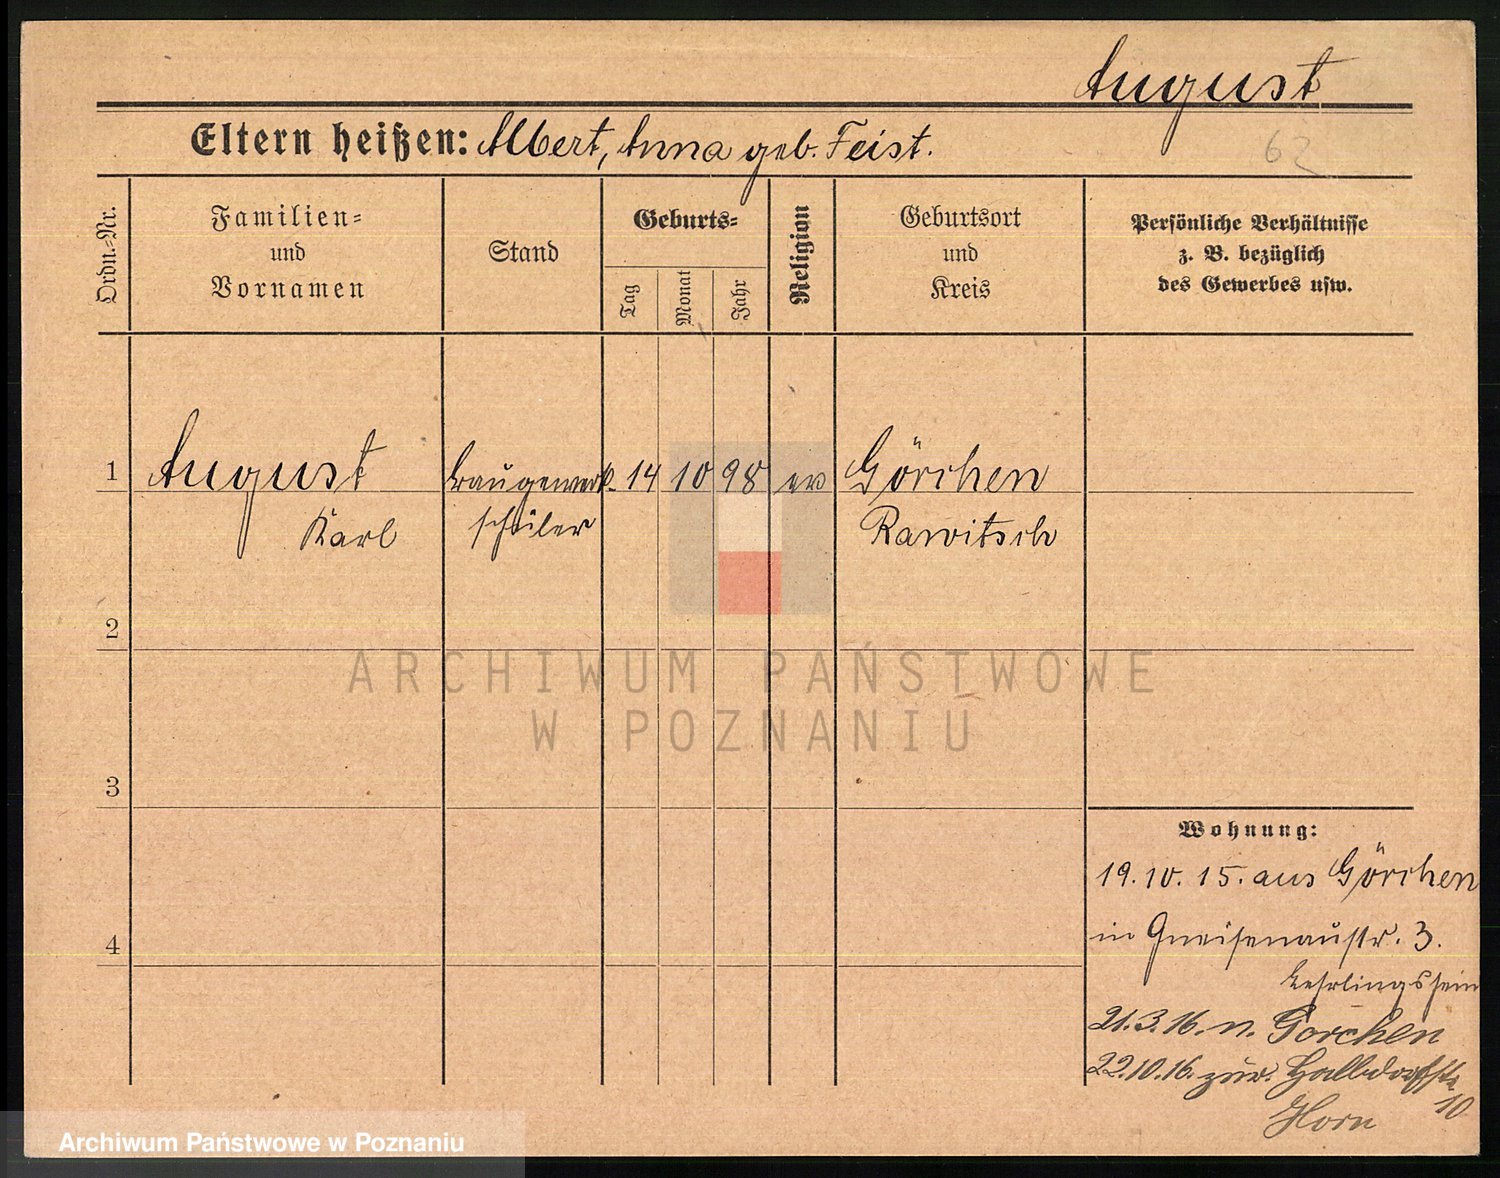 August
Eltern heißen: Albert, Anna geb. Feist.
62
Ordn.-Nr.
Familien-
und
Vornamen
Stand
Geburts-
Tag
Monat
Jahr
Religion
Geburtsort
und
Kreis
Persönliche Verhältnisse
z. B. bezüglich
des Gewerbes usw.
1 August Baugewerk- 14 10 98 ev Görchen
Karl schüler Rawitsch
2
ARCHIWUM PAŃSTWOWE
W POZNANIU
3
Wohnung:
19.10.15. aus Görchen
4
in Gneisenaustr. 3.
Lehrlingsheim
21.3.16. n. Görchen
22.10.16. zur. Halbdorfstr
10
Horn
Archiwum Państwowe w Poznaniu